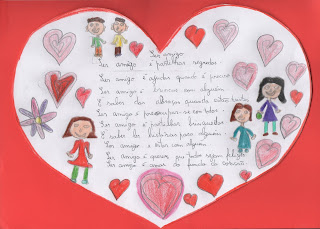 Ser amigo
Ser amigo é partilhar segredos
Ser amigo é ajudar quando é preciso
Ser amigo é brincar com alguém
E saber dar abraços quando estão tristes
Ser amigo é preocupar-se com todos
Ser amigo é partilhar brinquedos
E saber ler histórias para alguém
Ser amigo é estar com alguém
Ser amigo é querer que todos sejam felizes
Ser amigo é amar do fundo do coração